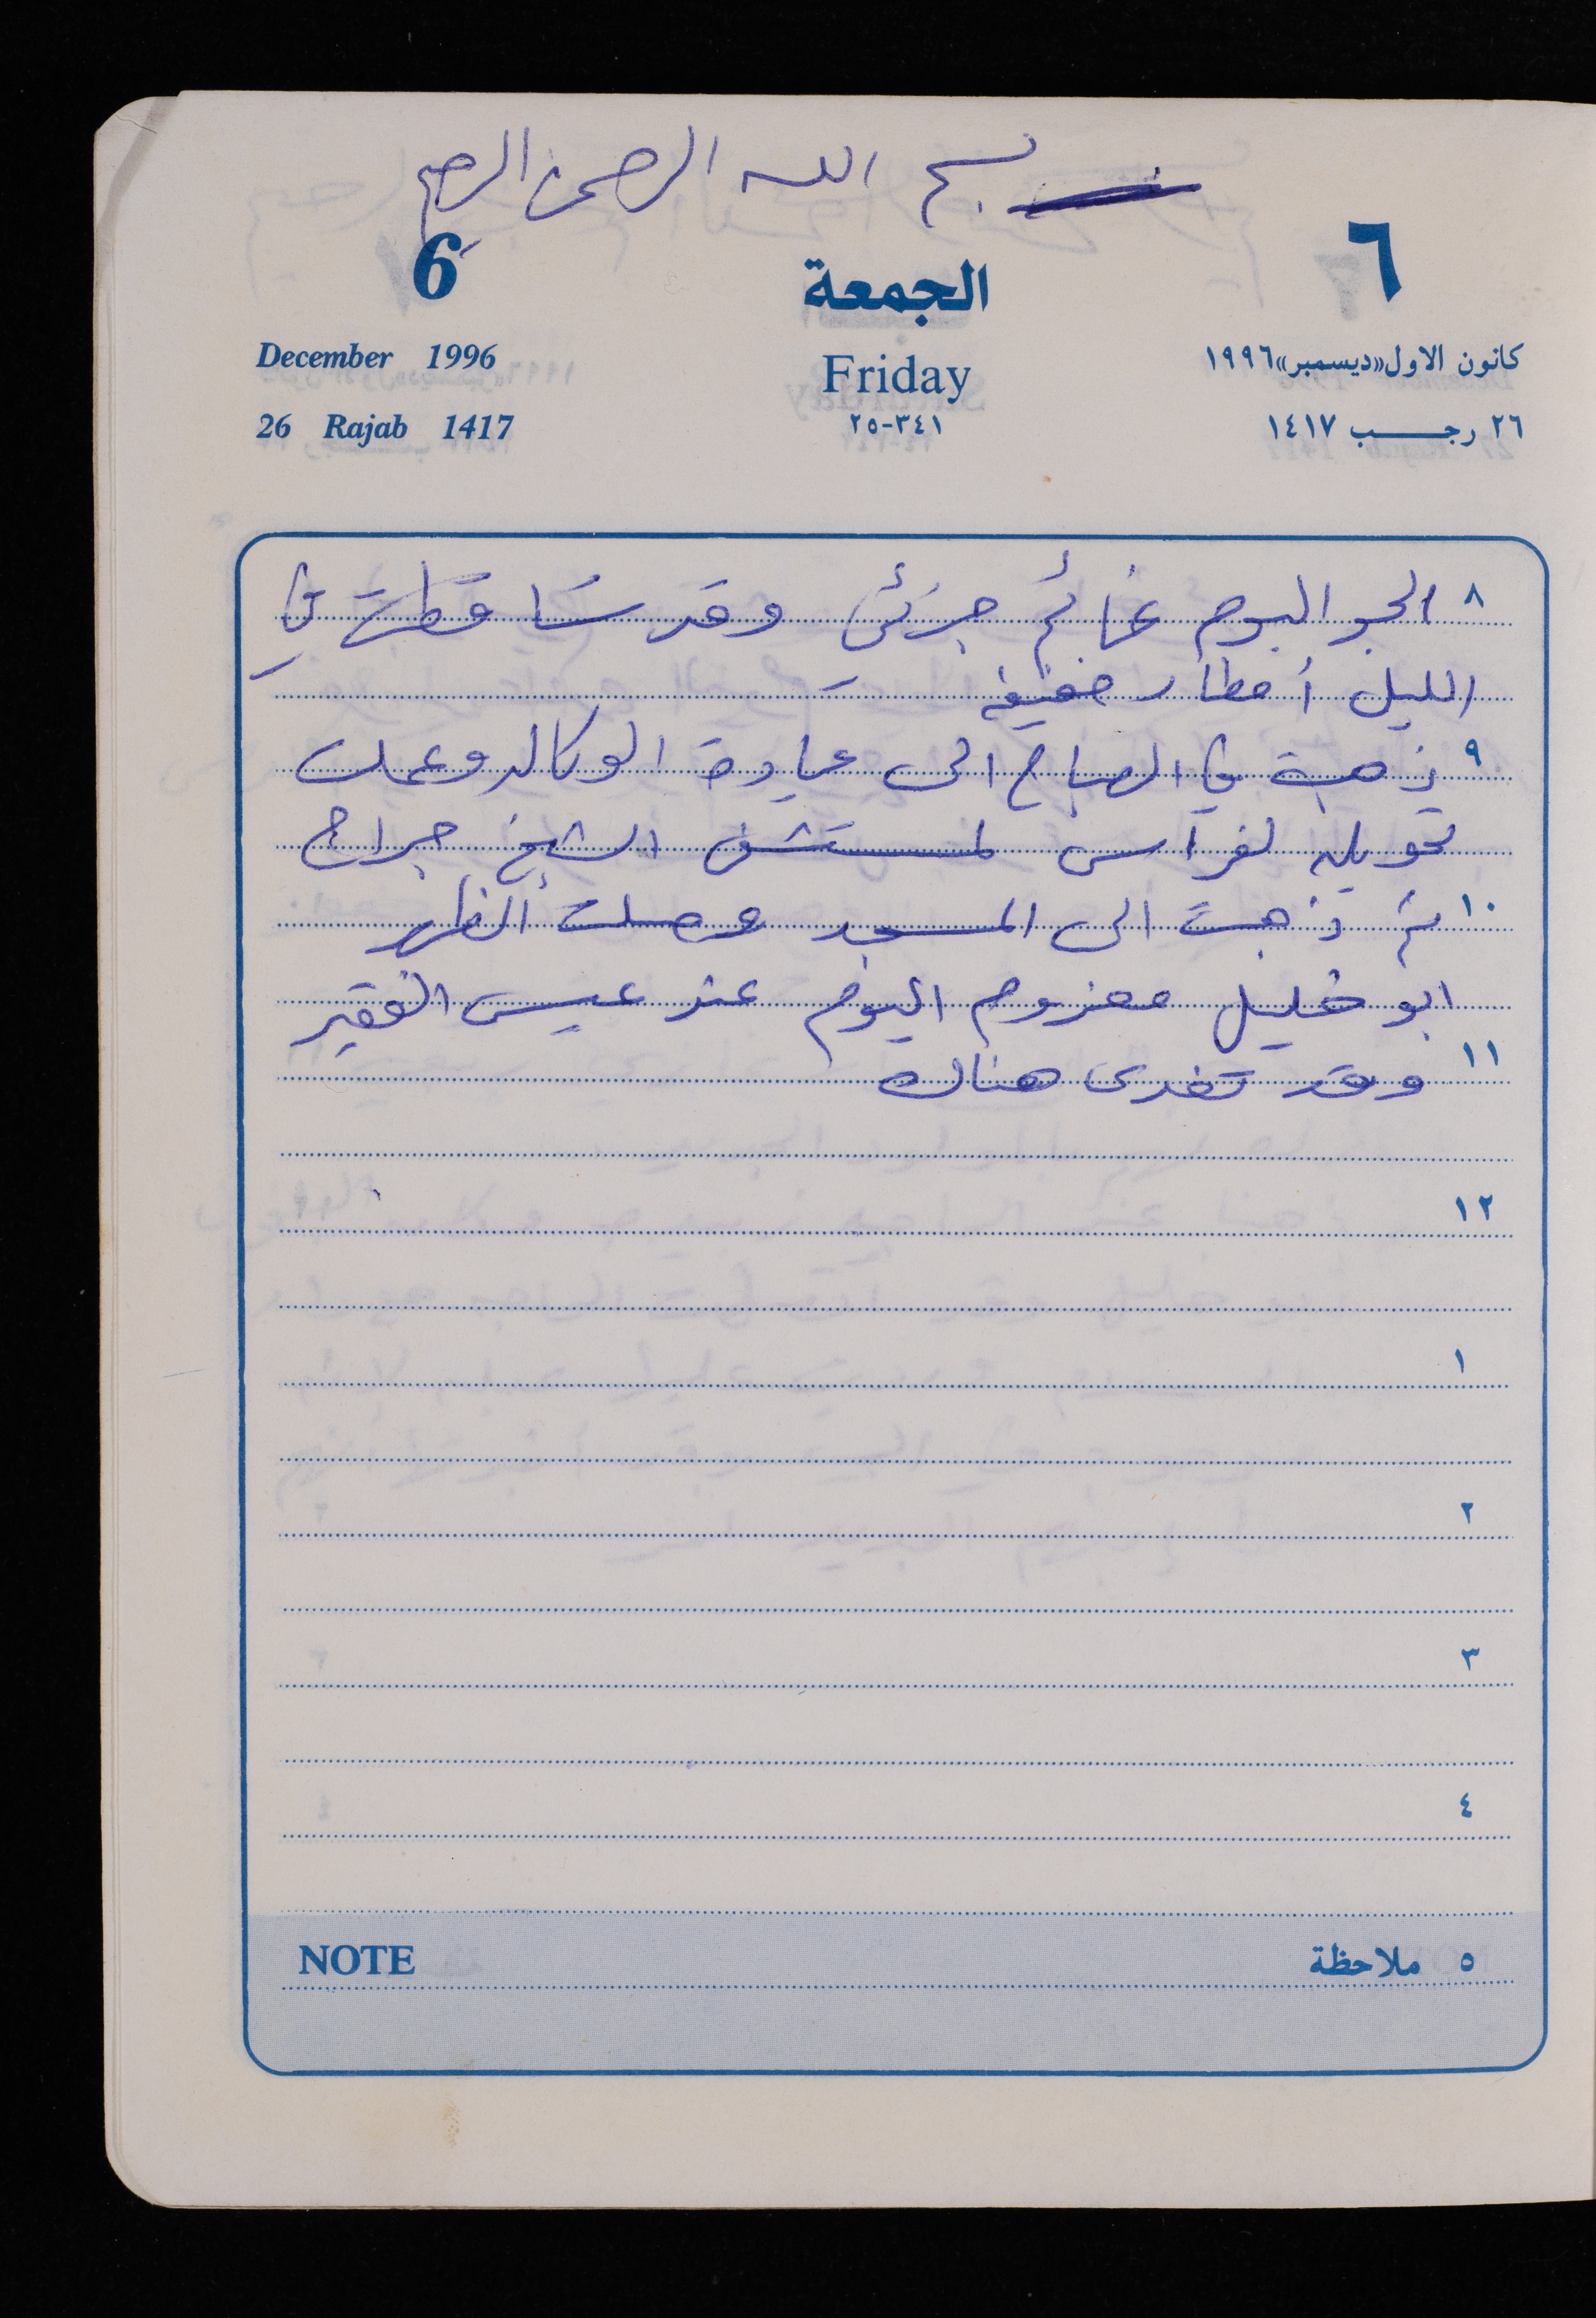 بسم الله الرحمن الرحيم
6 الجمعة ٦
December 1996 Friday كانون الاول«ديسمبر»١٩٩٦
26 Rajab 1417 ٣٤١-٢٥ ٢٦ رجب ١٤١٧
٨ الجو اليوم غائم جزئي وقد تساقطت في
الليل أمطار خفيفه
٩ ذهبت في الصباح الى عيادة الوكاله وعملت
تحويله لفراس لمستشفى الشيخ جراح
١٠ ثم ذهبت الى المسجد وصليت الظهر
ابو خليل معزوم اليوم عند عيسى الفقير
١١ وقد تغدى هناك
١٢
١
٢
٣
٤
NOTE ٥ ملاحظة